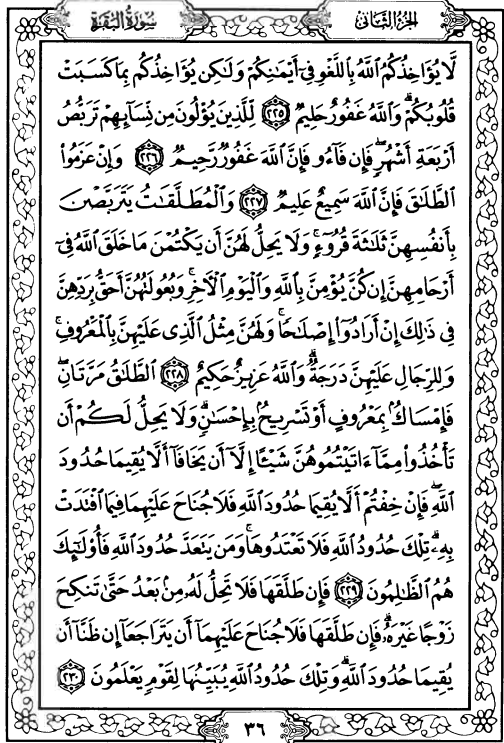 سُورَةُ البَقَرَةِ الجُزْءُ الثَّانِي
لَّا يُؤَاخِذُكُمُ ٱللَّهُ بِٱللَّغْوِ فِىٓ أَيْمَٰنِكُمْ وَلَٰكِن يُؤَاخِذُكُم بِمَا كَسَبَتْ
قُلُوبُكُمْ ۗ وَٱللَّهُ غَفُورٌ حَلِيمٌ ٢٢٥ لِّلَّذِينَ يُؤْلُونَ مِن نِّسَآئِهِمْ تَرَبُّصُ
أَرْبَعَةِ أَشْهُرٍ ۖ فَإِن فَآءُو فَإِنَّ ٱللَّهَ غَفُورٌ رَّحِيمٌ ٢٢٦ وَإِنْ عَزَمُوا۟
ٱلطَّلَٰقَ فَإِنَّ ٱللَّهَ سَمِيعٌ عَلِيمٌ ٢٢٧ وَٱلْمُطَلَّقَٰتُ يَتَرَبَّصْنَ
بِأَنفُسِهِنَّ ثَلَٰثَةَ قُرُوٓءٍ ۚ وَلَا يَحِلُّ لَهُنَّ أَن يَكْتُمْنَ مَا خَلَقَ ٱللَّهُ فِىٓ
أَرْحَامِهِنَّ إِن كُنَّ يُؤْمِنَّ بِٱللَّهِ وَٱلْيَوْمِ ٱلْءَاخِرِ ۚ وَبُعُولَتُهُنَّ أَحَقُّ بِرَدِّهِنَّ
فِى ذَٰلِكَ إِنْ أَرَادُوٓا۟ إِصْلَٰحًا ۚ وَلَهُنَّ مِثْلُ ٱلَّذِى عَلَيْهِنَّ بِٱلْمَعْرُوفِ ۚ
وَلِلرِّجَالِ عَلَيْهِنَّ دَرَجَةٌ ۗ وَٱللَّهُ عَزِيزٌ حَكِيمٌ ٢٢٨ ٱلطَّلَٰقُ مَرَّتَانِ ۖ
فَإِمْسَاكٌۢ بِمَعْرُوفٍ أَوْ تَسْرِيحٌۢ بِإِحْسَٰنٍ ۗ وَلَا يَحِلُّ لَكُمْ أَن
تَأْخُذُوا۟ مِمَّآ ءَاتَيْتُمُوهُنَّ شَيْـًٔا إِلَّآ أَن يَخَافَآ أَلَّا يُقِيمَا حُدُودَ
ٱللَّهِ ۖ فَإِنْ خِفْتُمْ أَلَّا يُقِيمَا حُدُودَ ٱللَّهِ فَلَا جُنَاحَ عَلَيْهِمَا فِيمَا ٱفْتَدَتْ
بِهِۦ ۗ تِلْكَ حُدُودُ ٱللَّهِ فَلَا تَعْتَدُوهَا ۚ وَمَن يَتَعَدَّ حُدُودَ ٱللَّهِ فَأُو۟لَٰٓئِكَ
هُمُ ٱلظَّٰلِمُونَ ٢٢٩ فَإِن طَلَّقَهَا فَلَا تَحِلُّ لَهُۥ مِنۢ بَعْدُ حَتَّىٰ تَنكِحَ
زَوْجًا غَيْرَهُۥ ۗ فَإِن طَلَّقَهَا فَلَا جُنَاحَ عَلَيْهِمَآ أَن يَتَرَاجَعَآ إِن ظَنَّآ أَن
يُقِيمَا حُدُودَ ٱللَّهِ ۗ وَتِلْكَ حُدُودُ ٱللَّهِ يُبَيِّنُهَا لِقَوْمٍ يَعْلَمُونَ ٢٣٠
٣٦